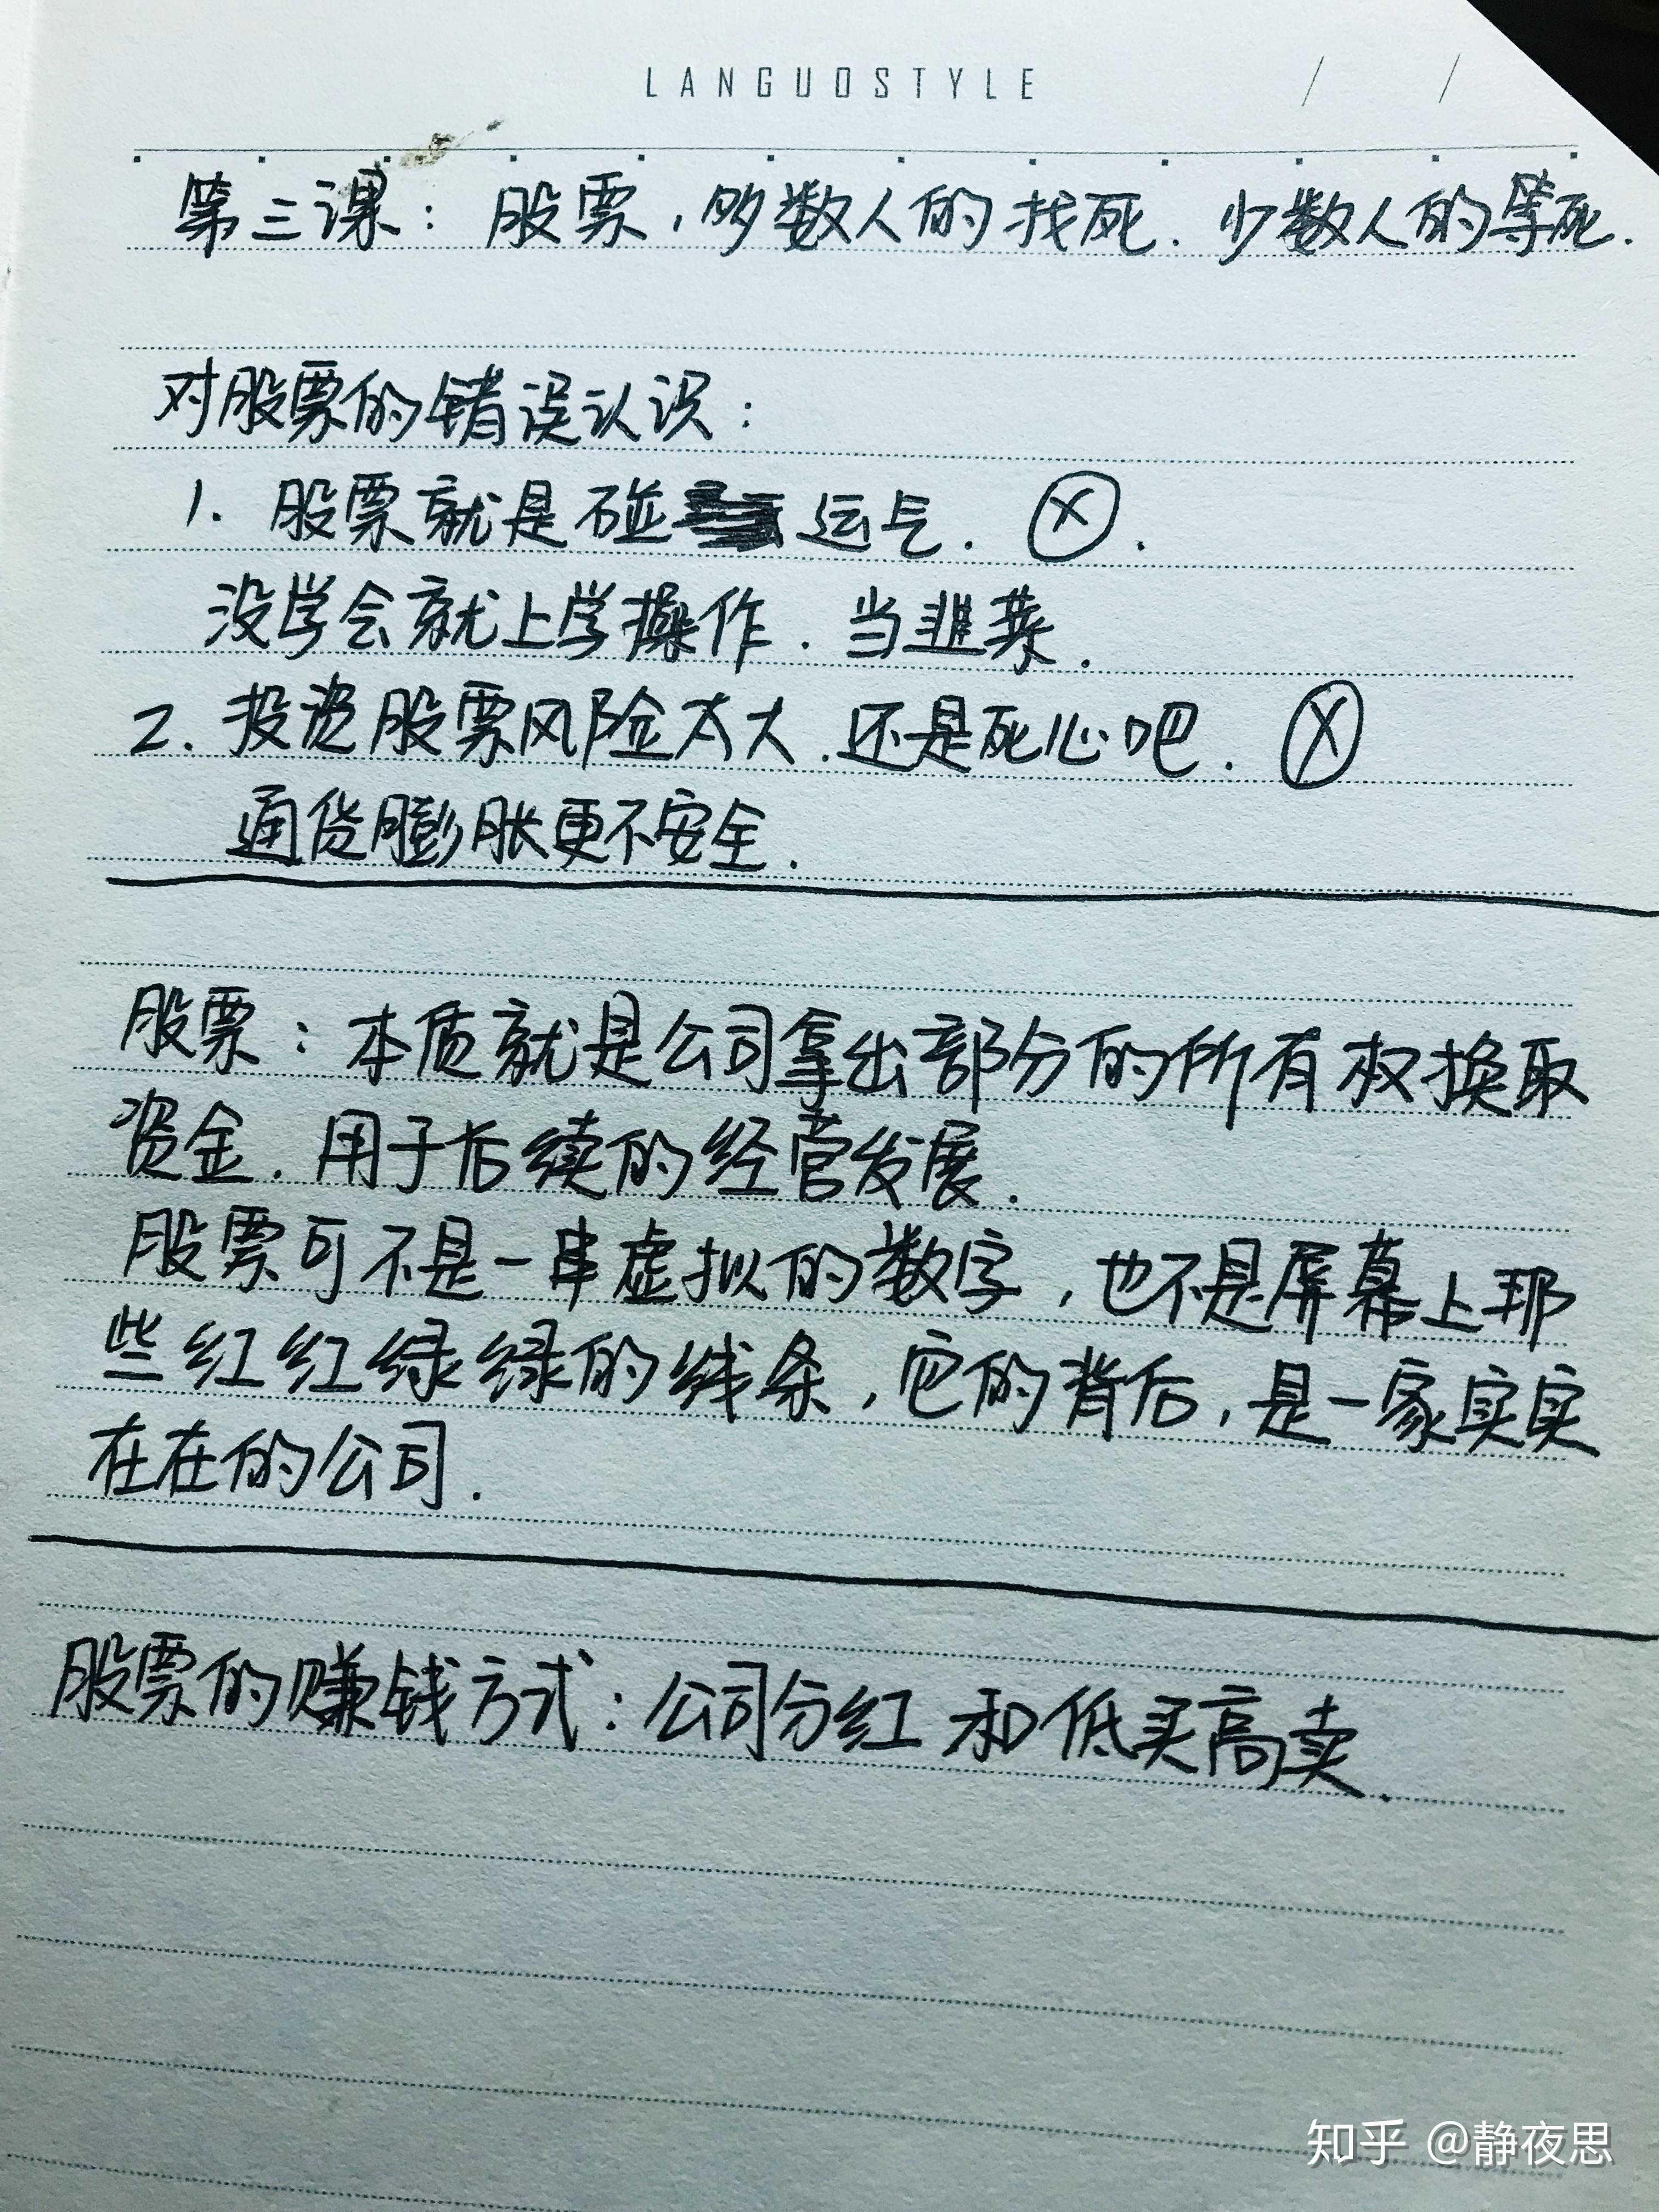 LANGUOSTYLE / /
第三课：股票，多数人的找死.少数人的等死.
对股票的错误认识：
1. 股票就是碰运气. ⓧ.
没学会就上学操作.当韭菜.
2. 投资股票风险太大.还是死心吧. ⓧ
通货膨胀更不安全.
股票：本质就是公司拿出部分的所有权换取
资金.用于后续的经营发展.
股票可不是一串虚拟的数字，也不是屏幕上那
些红红绿绿的线条，它的背后，是一家实实
在在的公司.
股票的赚钱方式：公司分红和低买高卖.
知乎 @静夜思